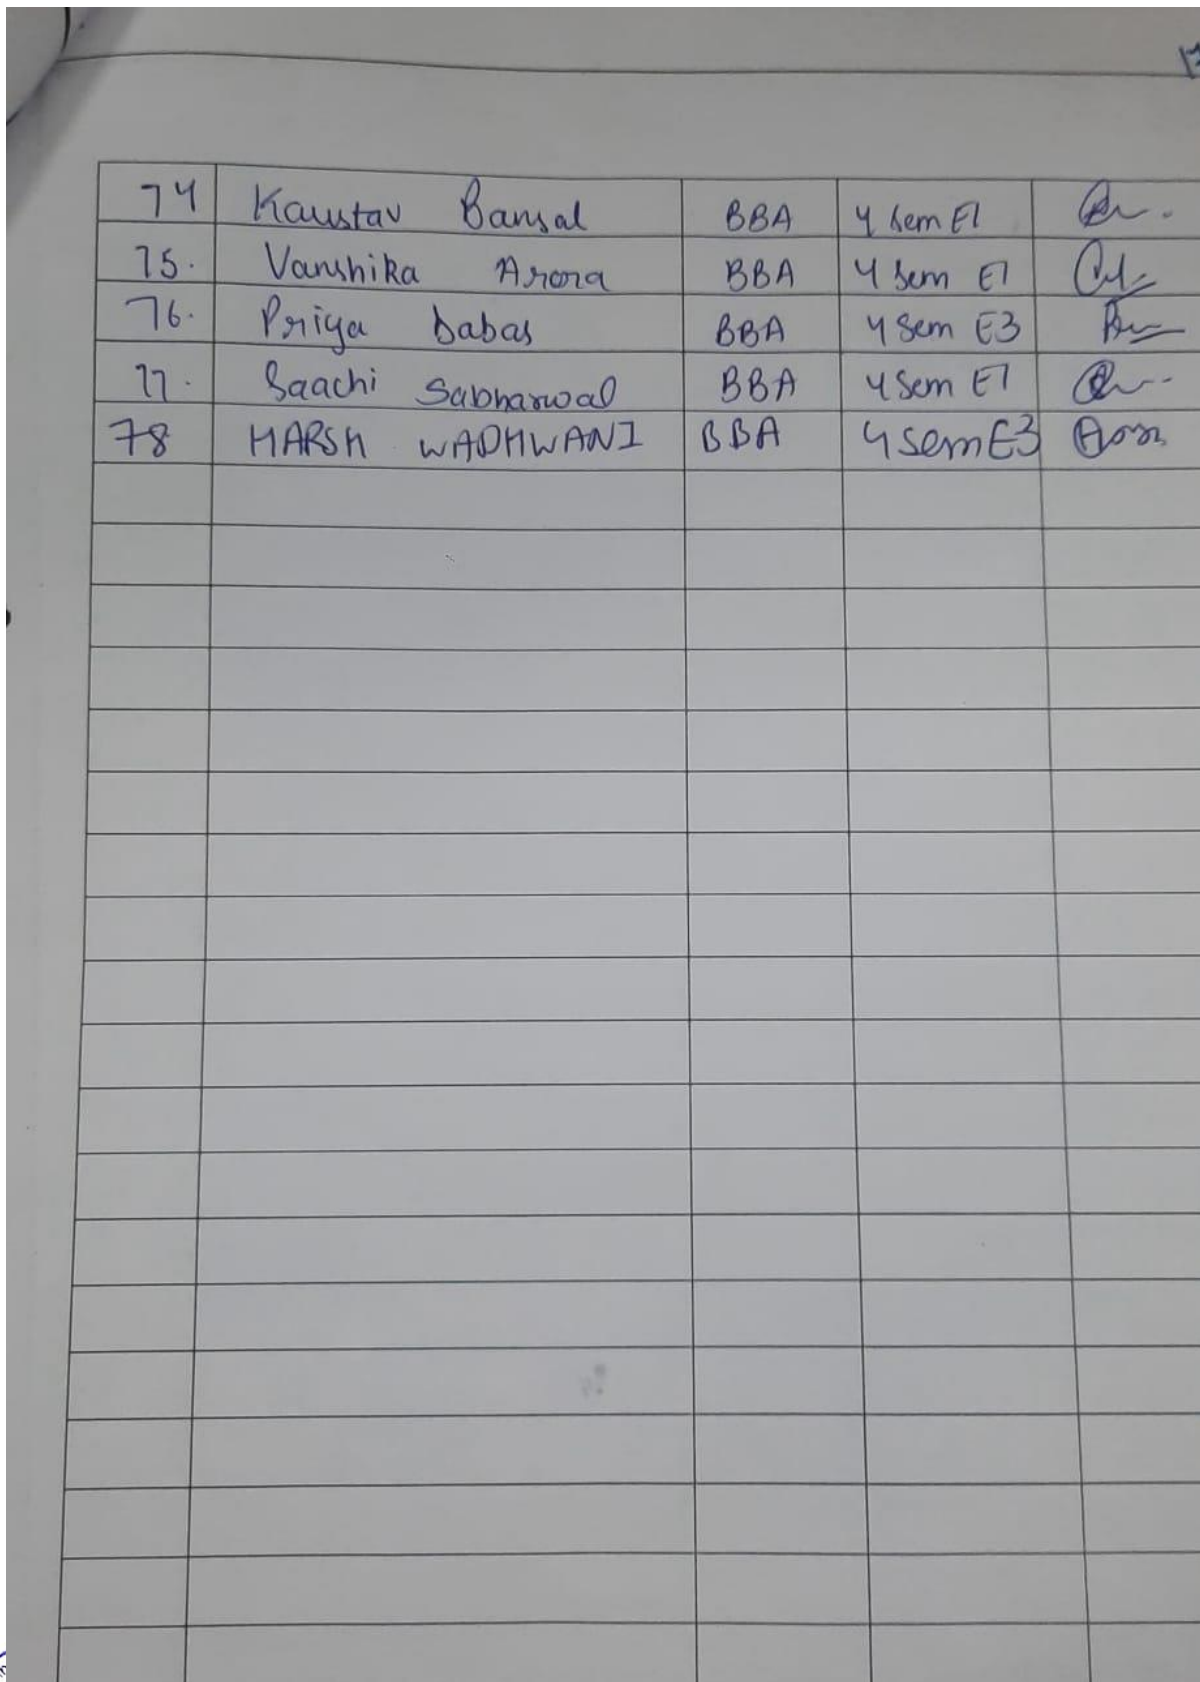 74 Kaustav Bansal BBA 4 Sem E1
75. Vanshika Arora BBA 4 Sem E1
76. Priya Dabas BBA 4 Sem E3
77. Saachi Sabharwal BBA 4 Sem E1
78 HARSH WADHWANI BBA 4 Sem E3